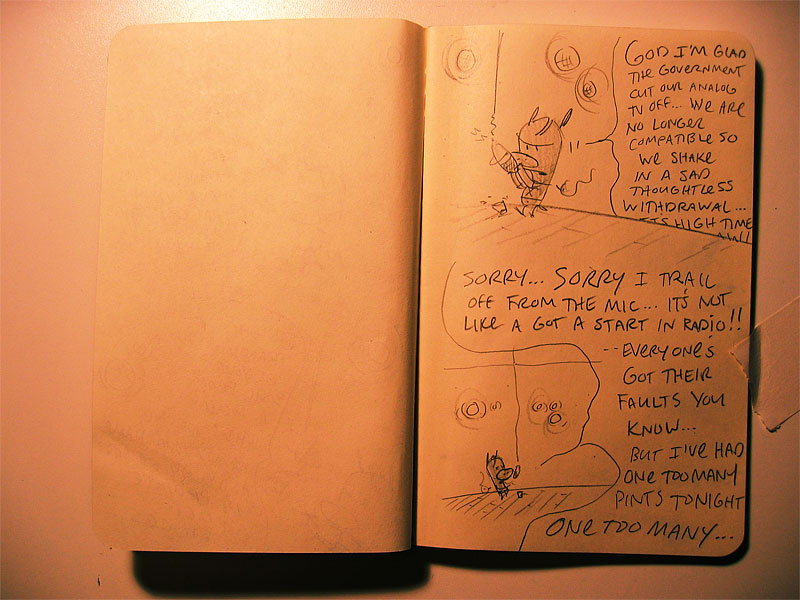 GOD I'M GLAD
THE GOVERNMENT
CUT OUR ANALOG
TV OFF... WE ARE
NO LONGER
COMPATIBLE SO
WE SHAKE
IN A SAD
THOUGHTLESS
WITHDRAWAL...
ITS HIGH TIME
SORRY... SORRY I TRAIL
OFF FROM THE MIC... IT'S NOT
LIKE A GOT A START IN RADIO!!
--EVERYONE'S
GOT THEIR
FAULTS YOU
KNOW...
BUT I'VE HAD
ONE TOO MANY
PINTS TONIGHT
ONE TOO MANY...